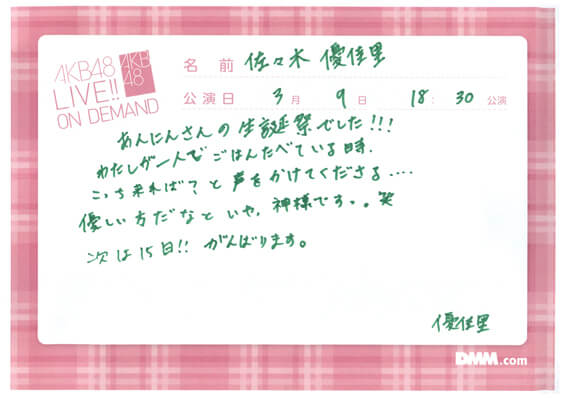 AKB48
LIVE!!
ON DEMAND
AKB
48
名前 佐々木 優佳里
公演日 3月 9日 18:30公演
あんにんさんの生誕祭でした!!!
わたしが一人でごはんたべている時、
こっち来れば?と声をかけてくださる....
優しい方だなと いや、神様です。。笑
次は15日!! がんばります。
優佳里
DMM.com